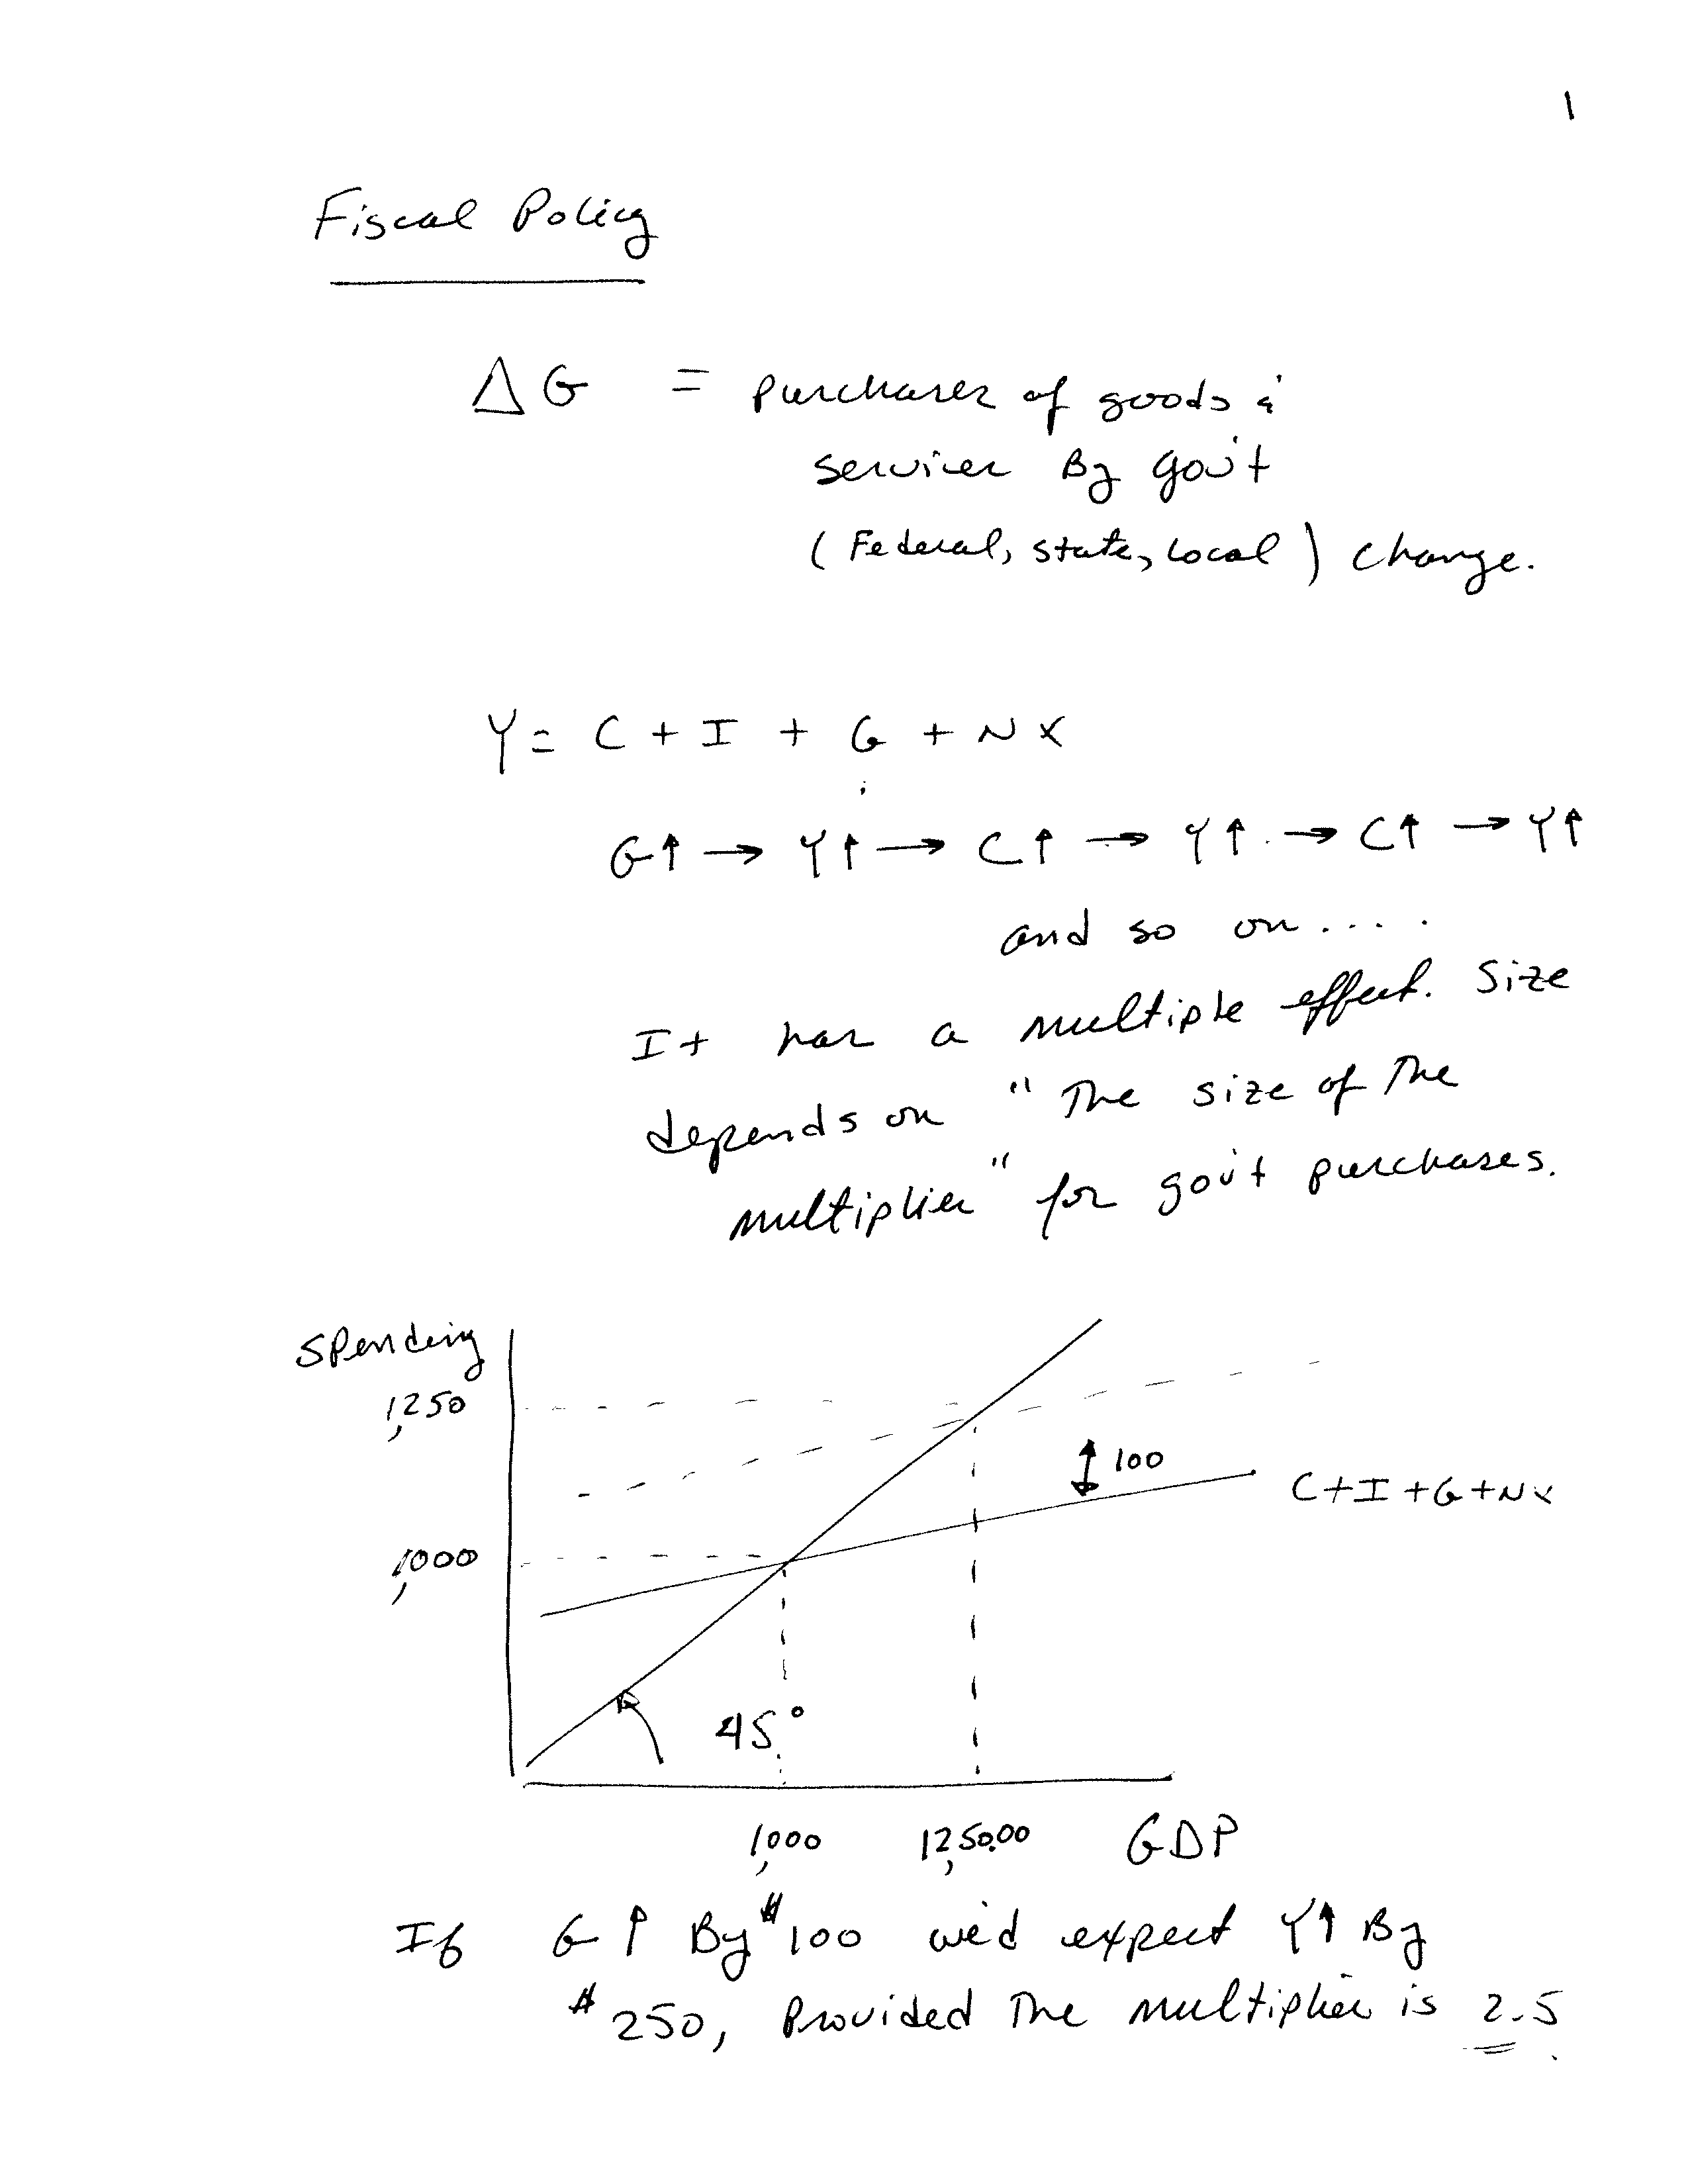 1
Fiscal Policy
Δ G = purchases of goods &
services By gov't
(Federal, state, local) change.
Y = C + I + G + NX
G↑ → Y↑ → C↑ → Y↑ → C↑ → Y↑
and so on....
It has a multiple effect. Size
depends on "The size of The
multiplier" for gov't purchases.
Spending
1,250
100
C+I+G+NX
1,000
45°
1,000 12,50.00 GDP
If G↑ By $100 we'd expect Y↑ By
$250, Provided The multiplier is 2.5